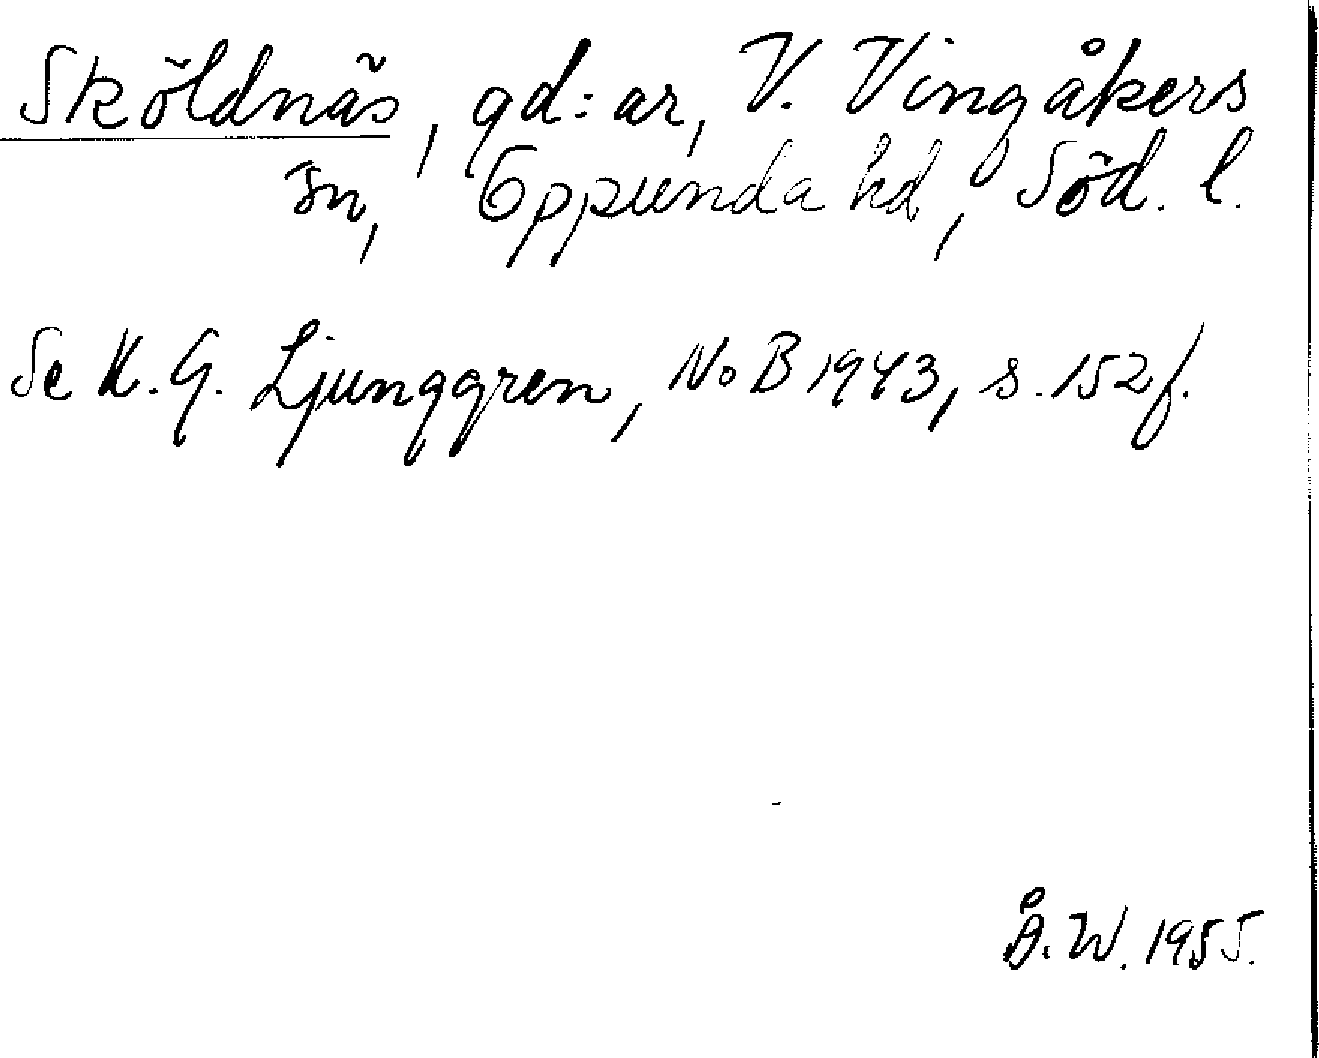 Sköldnäs, gd:ar, V. Vingåkers
sn, Oppunda hd, Söd. l.
Se K. G. Ljunggren, NoB 1943, s. 152 f.
Å. W. 1955.